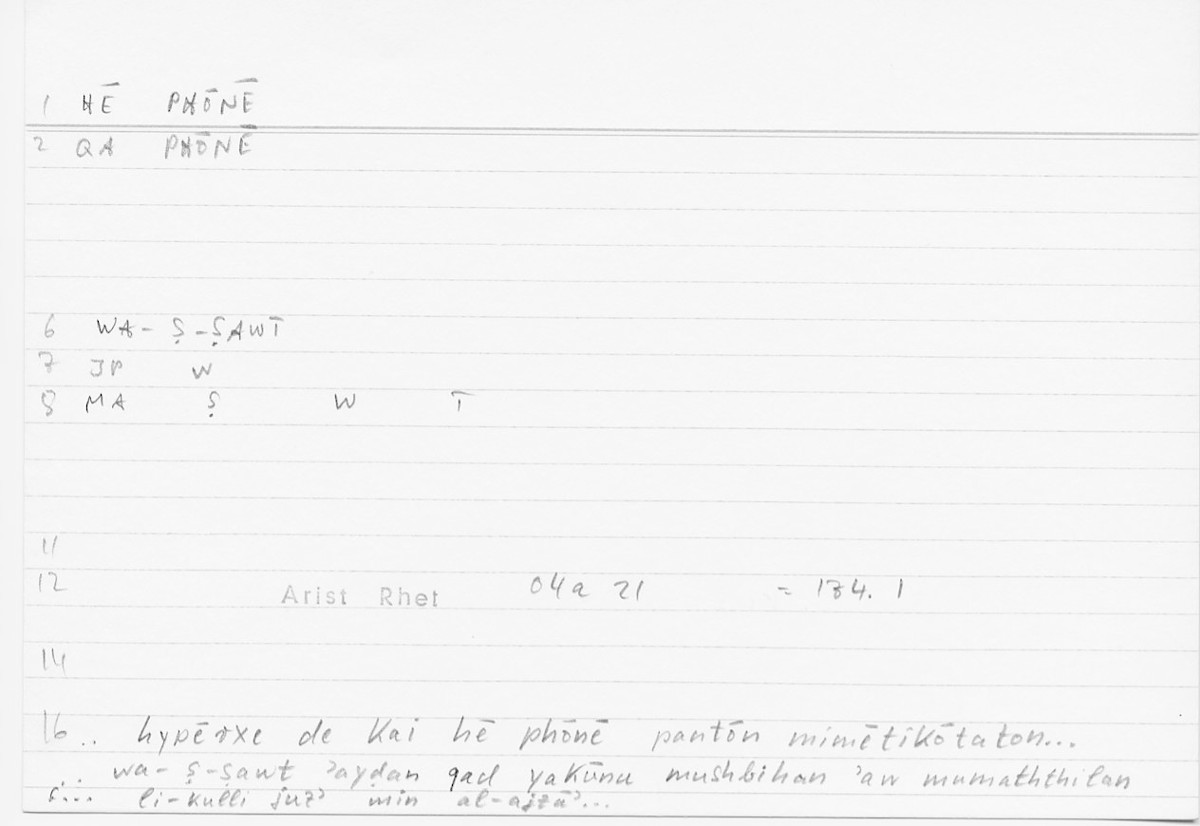 1 HĒ PHŌNĒ
2 QA PHŌNĒ
6 WA- Ṣ-ṢAWT
7 JP W
8 MA Ṣ W T
11
12 Arist Rhet 04a 21 = 184. 1
14
16 .. hypērxe de kai hē phōnē pantōn mimētikōtaton...
... wa- ṣ-ṣawt ʾayḍan qad yakūnu mushbihan ʾaw mumaththilan
... li-kulli juzʾ min al-ajzāʾ...